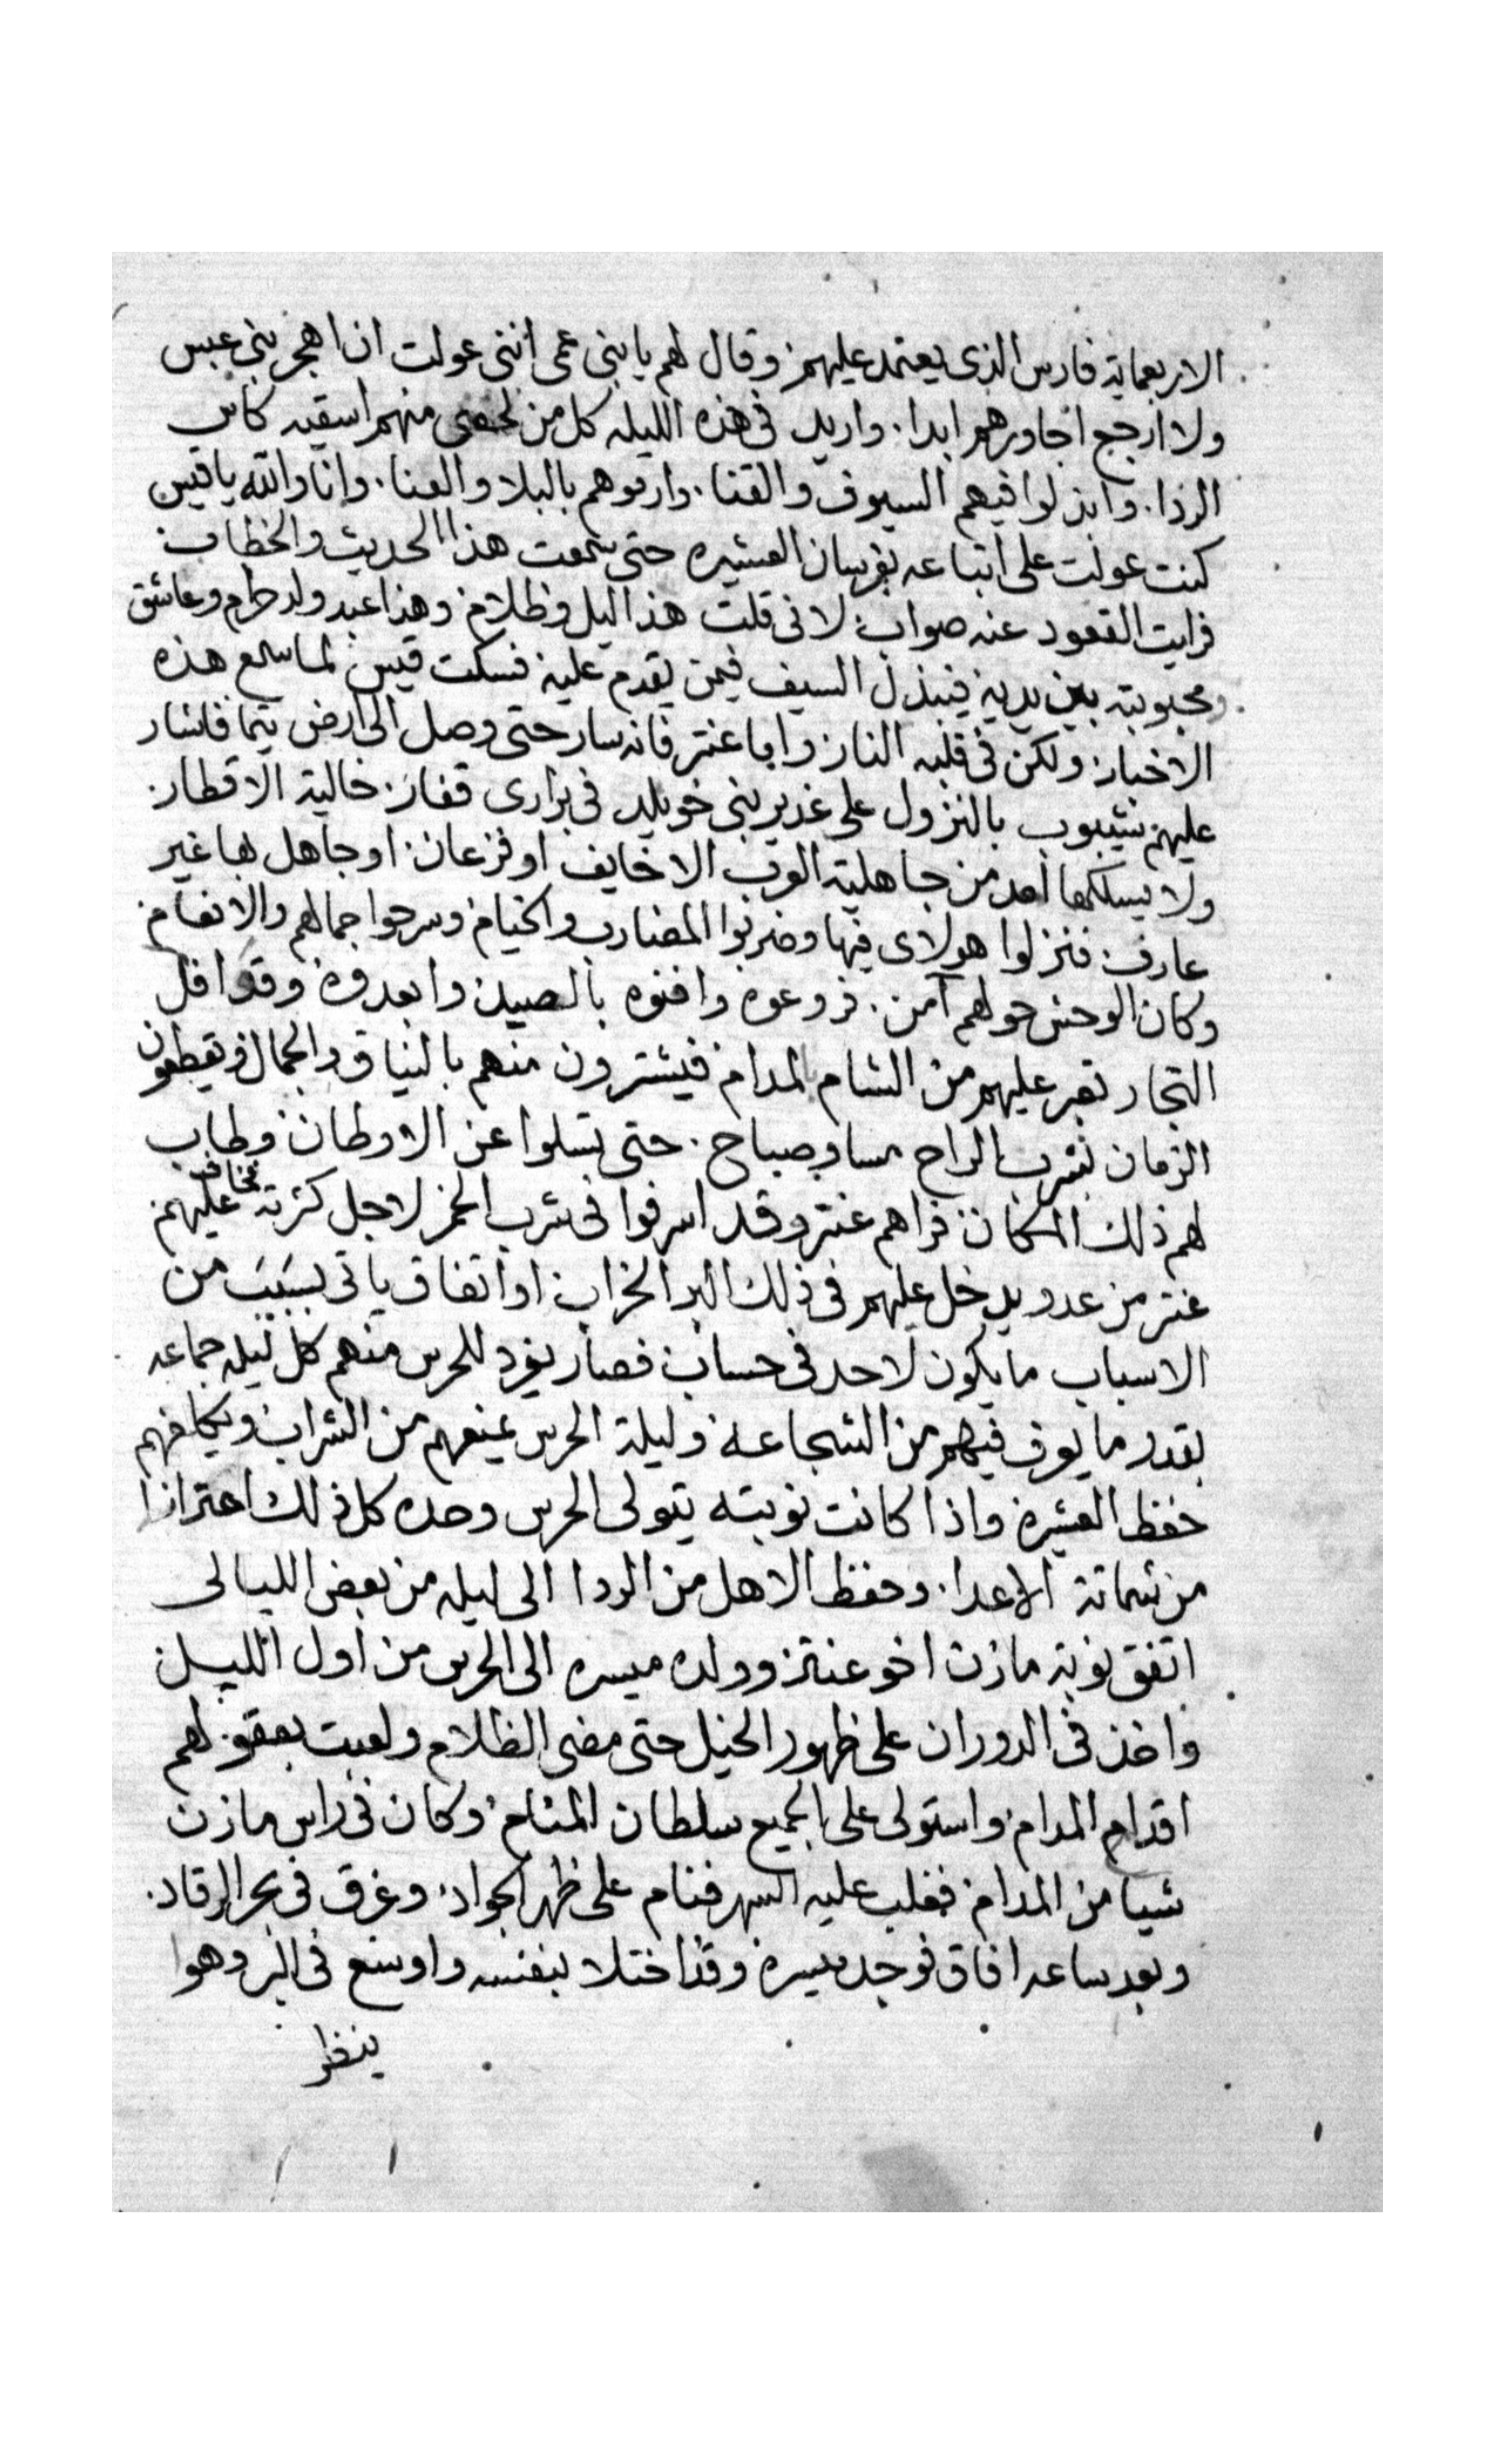 الاربعماية فارس الذى يعتمد عليهم وقال لهم يا بنى عمى اننى عولت ان اهجر بنى عبس
ولا ارجع اجاورهم ابدا. واريد فى هذه الليله كل من لحقنى منهم اسقيه كاس
الردا. وابذلوا فيهم السيوف والقنا. وارموهم بالبلا والعنا. وانا والله يا قيس
كنت عولت على اتباعه بفرسان العشيره حتى سمعت هذا الحديث والخطاب.
فرايت القعود عنه صواب. لانى قلت هذا ليل وظلام وهذا عبد ولد حرام وعاشق
ومحبوبته بين يديه فيبذل السيف فيمن يقدم عليه فسكت قيس لما سمع هذه
الاخبار ولكن فى قلبه النار واما عنتر فانه سار حتى وصل الى ارض تيما فاشار
عليهم شيبوب بالنزول على غدير بنى خويلد فى برارى قفار. خالية الاقطار.
ولا يسلكها احد من جاهلية العرب الا خايف او فزعان. او جاهل بها غير
عارف فنزلوا هولاى فيها وضربوا المضارب والخيام وسرحوا جمالهم والانعام.
وكان الوحش حولهم آمن. فروعوه وافنوه بالصيد وابعدوه وقوافل
التجار تعبر عليهم من الشام بالمدام فيشترون منهم بالنياق والجمال ويقطعون
الزمان بشرب الراح مسا وصباح. حتى تسلوا عن الاوطان وطاب
لهم ذلك المكان فراهم عنتر وقد اسرفوا فى شرب الخمر لاجل كثرته فخاف عليهم
عنتر من عدو يدخل عليهم فى ذلك البر الخراب او اتفاق ياتى بسبب من
الاسباب ما يكون لاحد فى حساب فصار يفرد للحرس منهم كل ليله جماعه
بقدر ما يعرف فيهم من الشجاعة وليلة الحرس يمنعهم من الشراب ويكلفهم
حفظ العشيره واذا كانت نوبته يتولى الحرس وحده كل ذلك احترازا
من شماتة الاعدا. وحفظ الاهل من الردا الى ليله من بعض الليالى
اتفق نوبة مازن اخو عنتر وولده ميسره الى الحرس من اول الليل
واخذ فى الدوران على ظهور الخيل حتى مضى الظلام ولعبت بعقولهم
اقدام المدام واستولى على الجميع سلطان المنام وكان فى راس مازن
شيا من المدام فغلب عليه السهر فنام على ظهر الجواد. وغرق فى بحر الرقاد.
وبعد ساعه افاق فوجد ميسره وقد اختلا بنفسه واوسع فى البر وهوا
ينظر